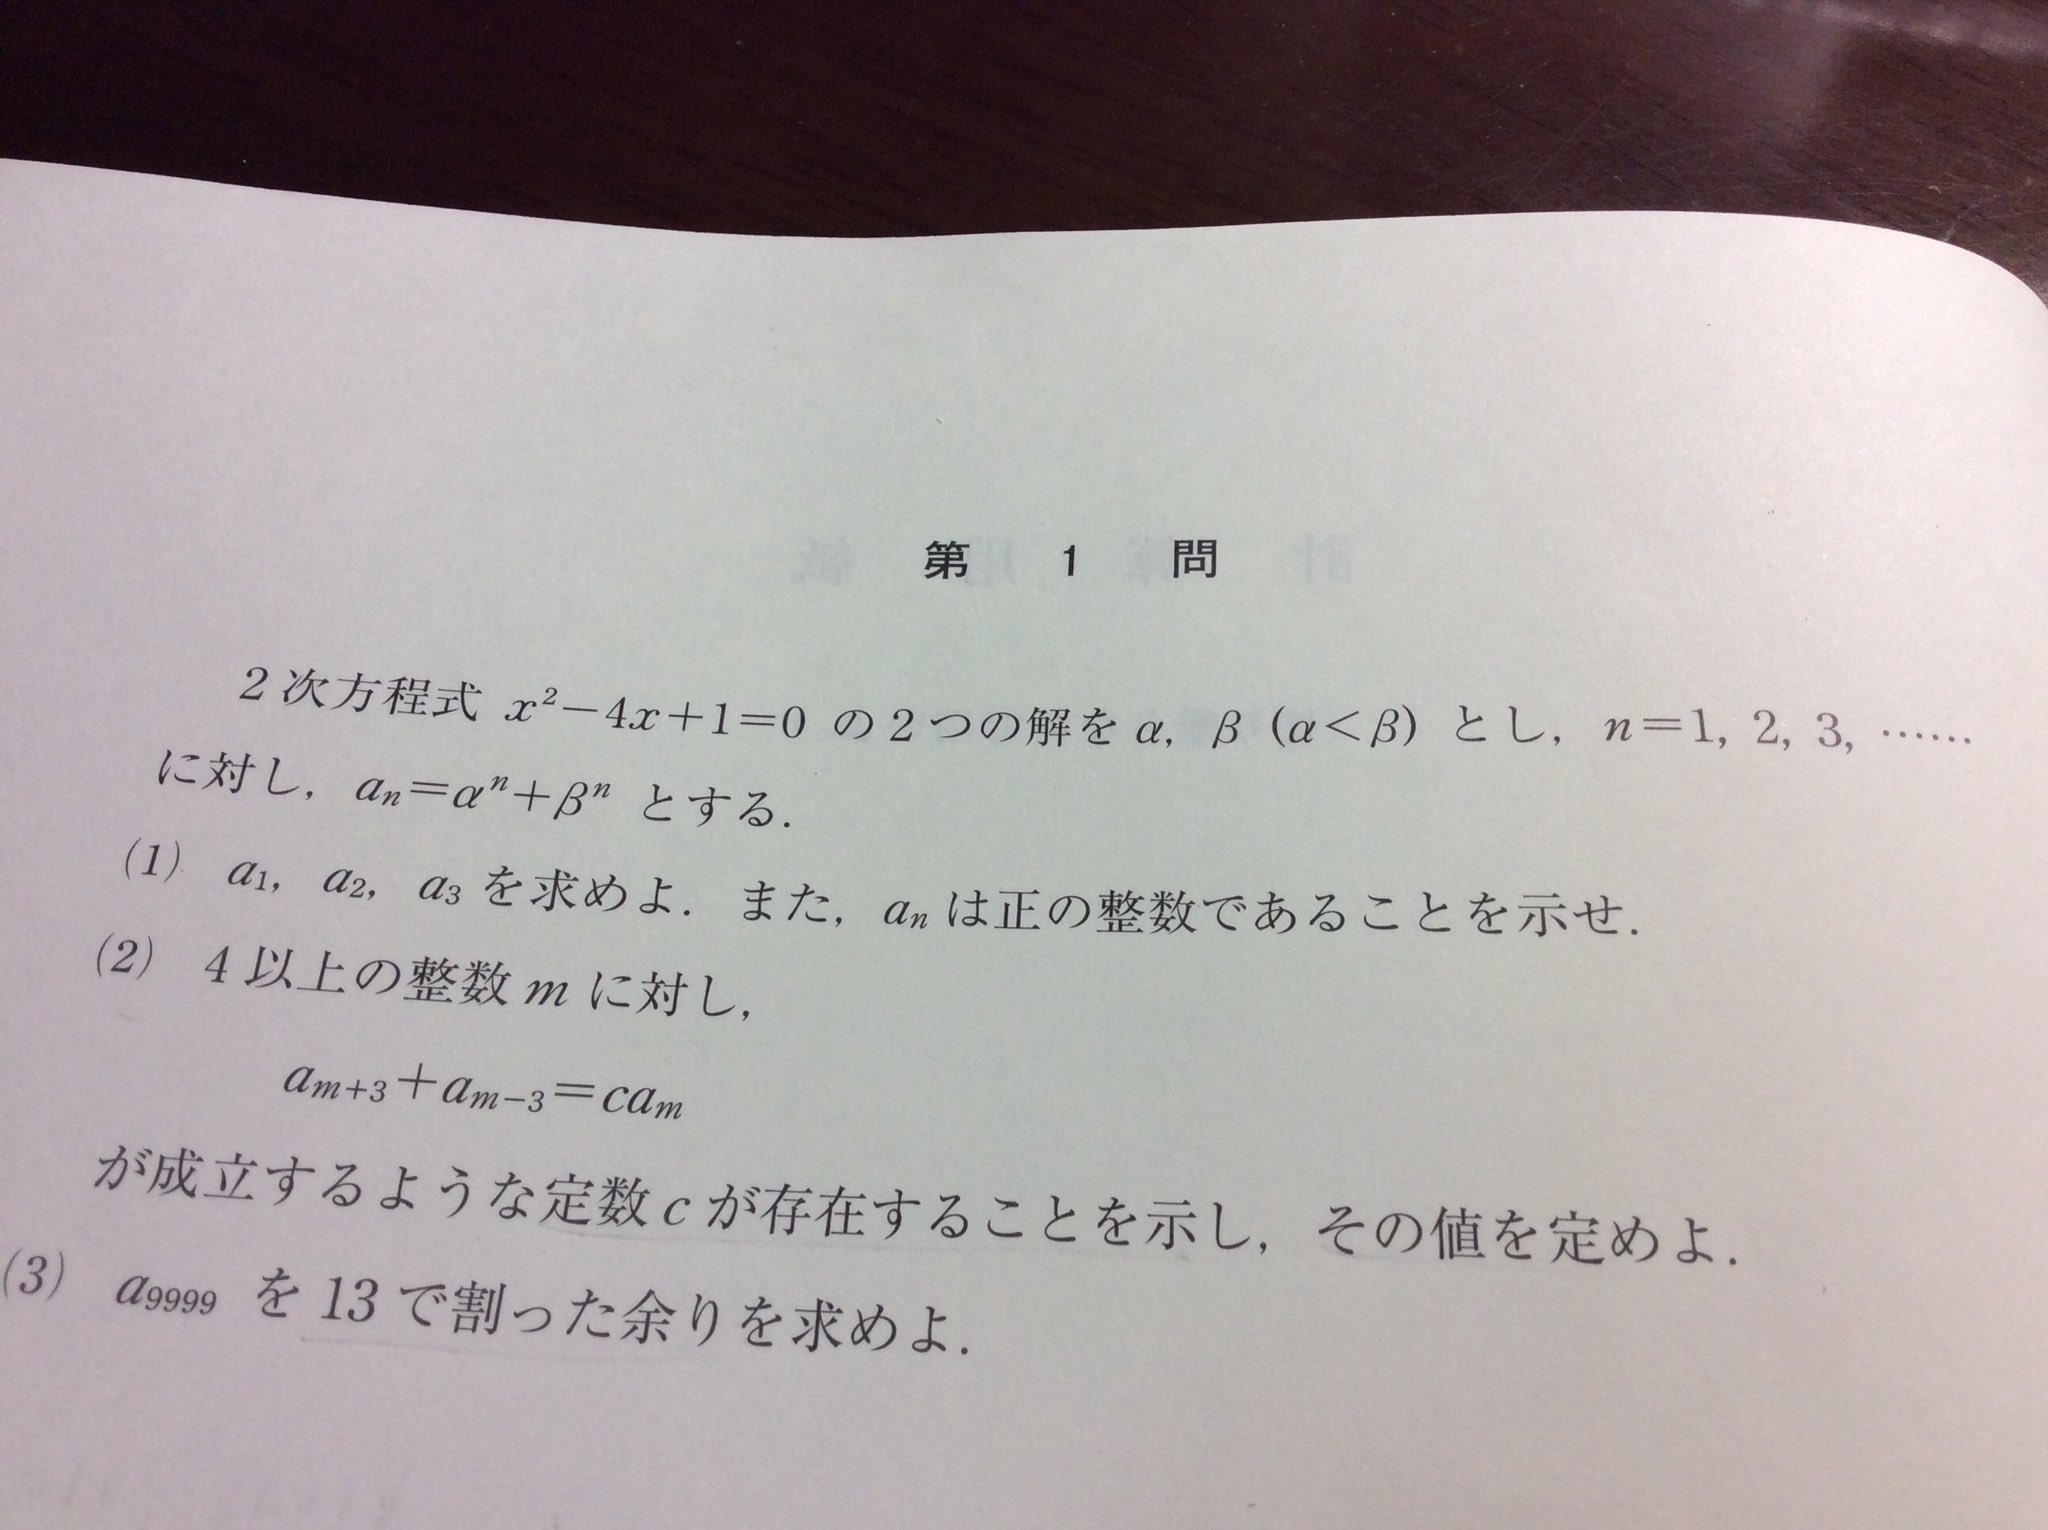 第 1 問
2次方程式 x²−4x+1=0 の2つの解を α, β (α<β) とし, n=1, 2, 3, ……
に対し, aₙ=αⁿ+βⁿ とする.
(1) a₁, a₂, a₃ を求めよ. また, aₙ は正の整数であることを示せ.
(2) 4以上の整数 m に対し,
aₘ₊₃+aₘ₋₃=caₘ
が成立するような定数 c が存在することを示し, その値を定めよ.
(3) a₉₉₉₉ を 13 で割った余りを求めよ.